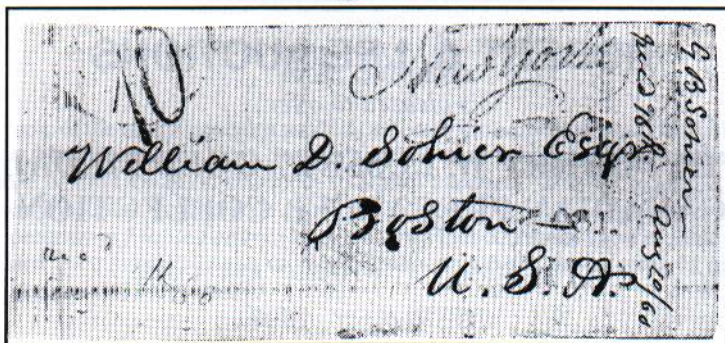 10
New York
William D. Sohier Esqr
Boston
U. S. A.
G B Sohier
Aug 20/60